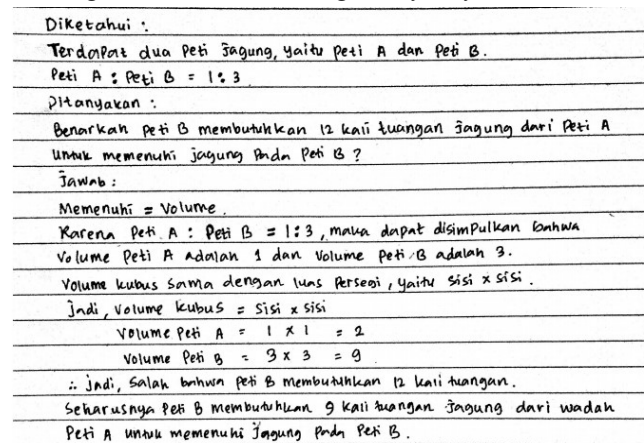 Diketahui :
Terdapat dua Peti Jagung, yaitu peti A dan Peti B.
Peti A : Peti B = 1 : 3
Ditanyakan :
Benarkah Peti B membutuhkan 12 kali tuangan jagung dari Peti A
untuk memenuhi jagung Pada Peti B ?
Jawab :
Memenuhi = Volume.
Karena Peti A : Peti B = 1 : 3, maka dapat disimpulkan bahwa
Volume Peti A adalah 1 dan Volume Peti B adalah 3.
Volume kubus sama dengan luas Persegi, yaitu sisi x sisi.
Jadi, Volume kubus = sisi x sisi
Volume Peti A = 1 x 1 = 2
Volume Peti B = 3 x 3 = 9
∴ Jadi, Salah bahwa Peti B membutuhkan 12 kali tuangan.
Seharusnya Peti B membutuhkan 9 kali tuangan Jagung dari wadah
Peti A untuk memenuhi Jagung Pada Peti B.